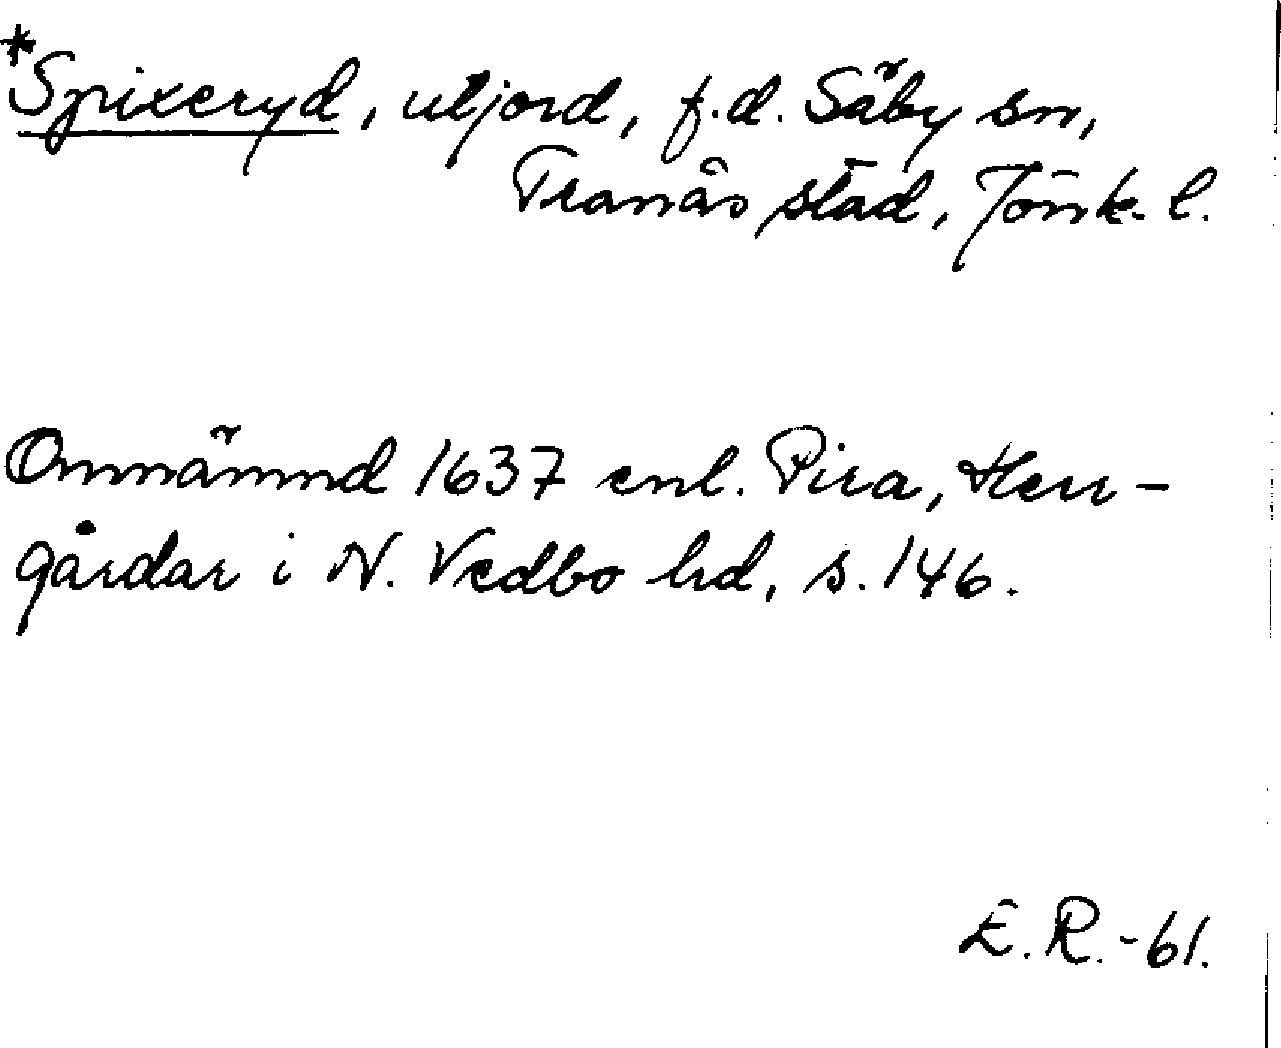 *Spixeryd, utjord, f.d. Säby sn,
Tranås stad, Jönk. l.
Omnämnd 1637 enl. Pira, Herr-
gårdar i N. Vedbo hd, s. 146.
E. R. -61.